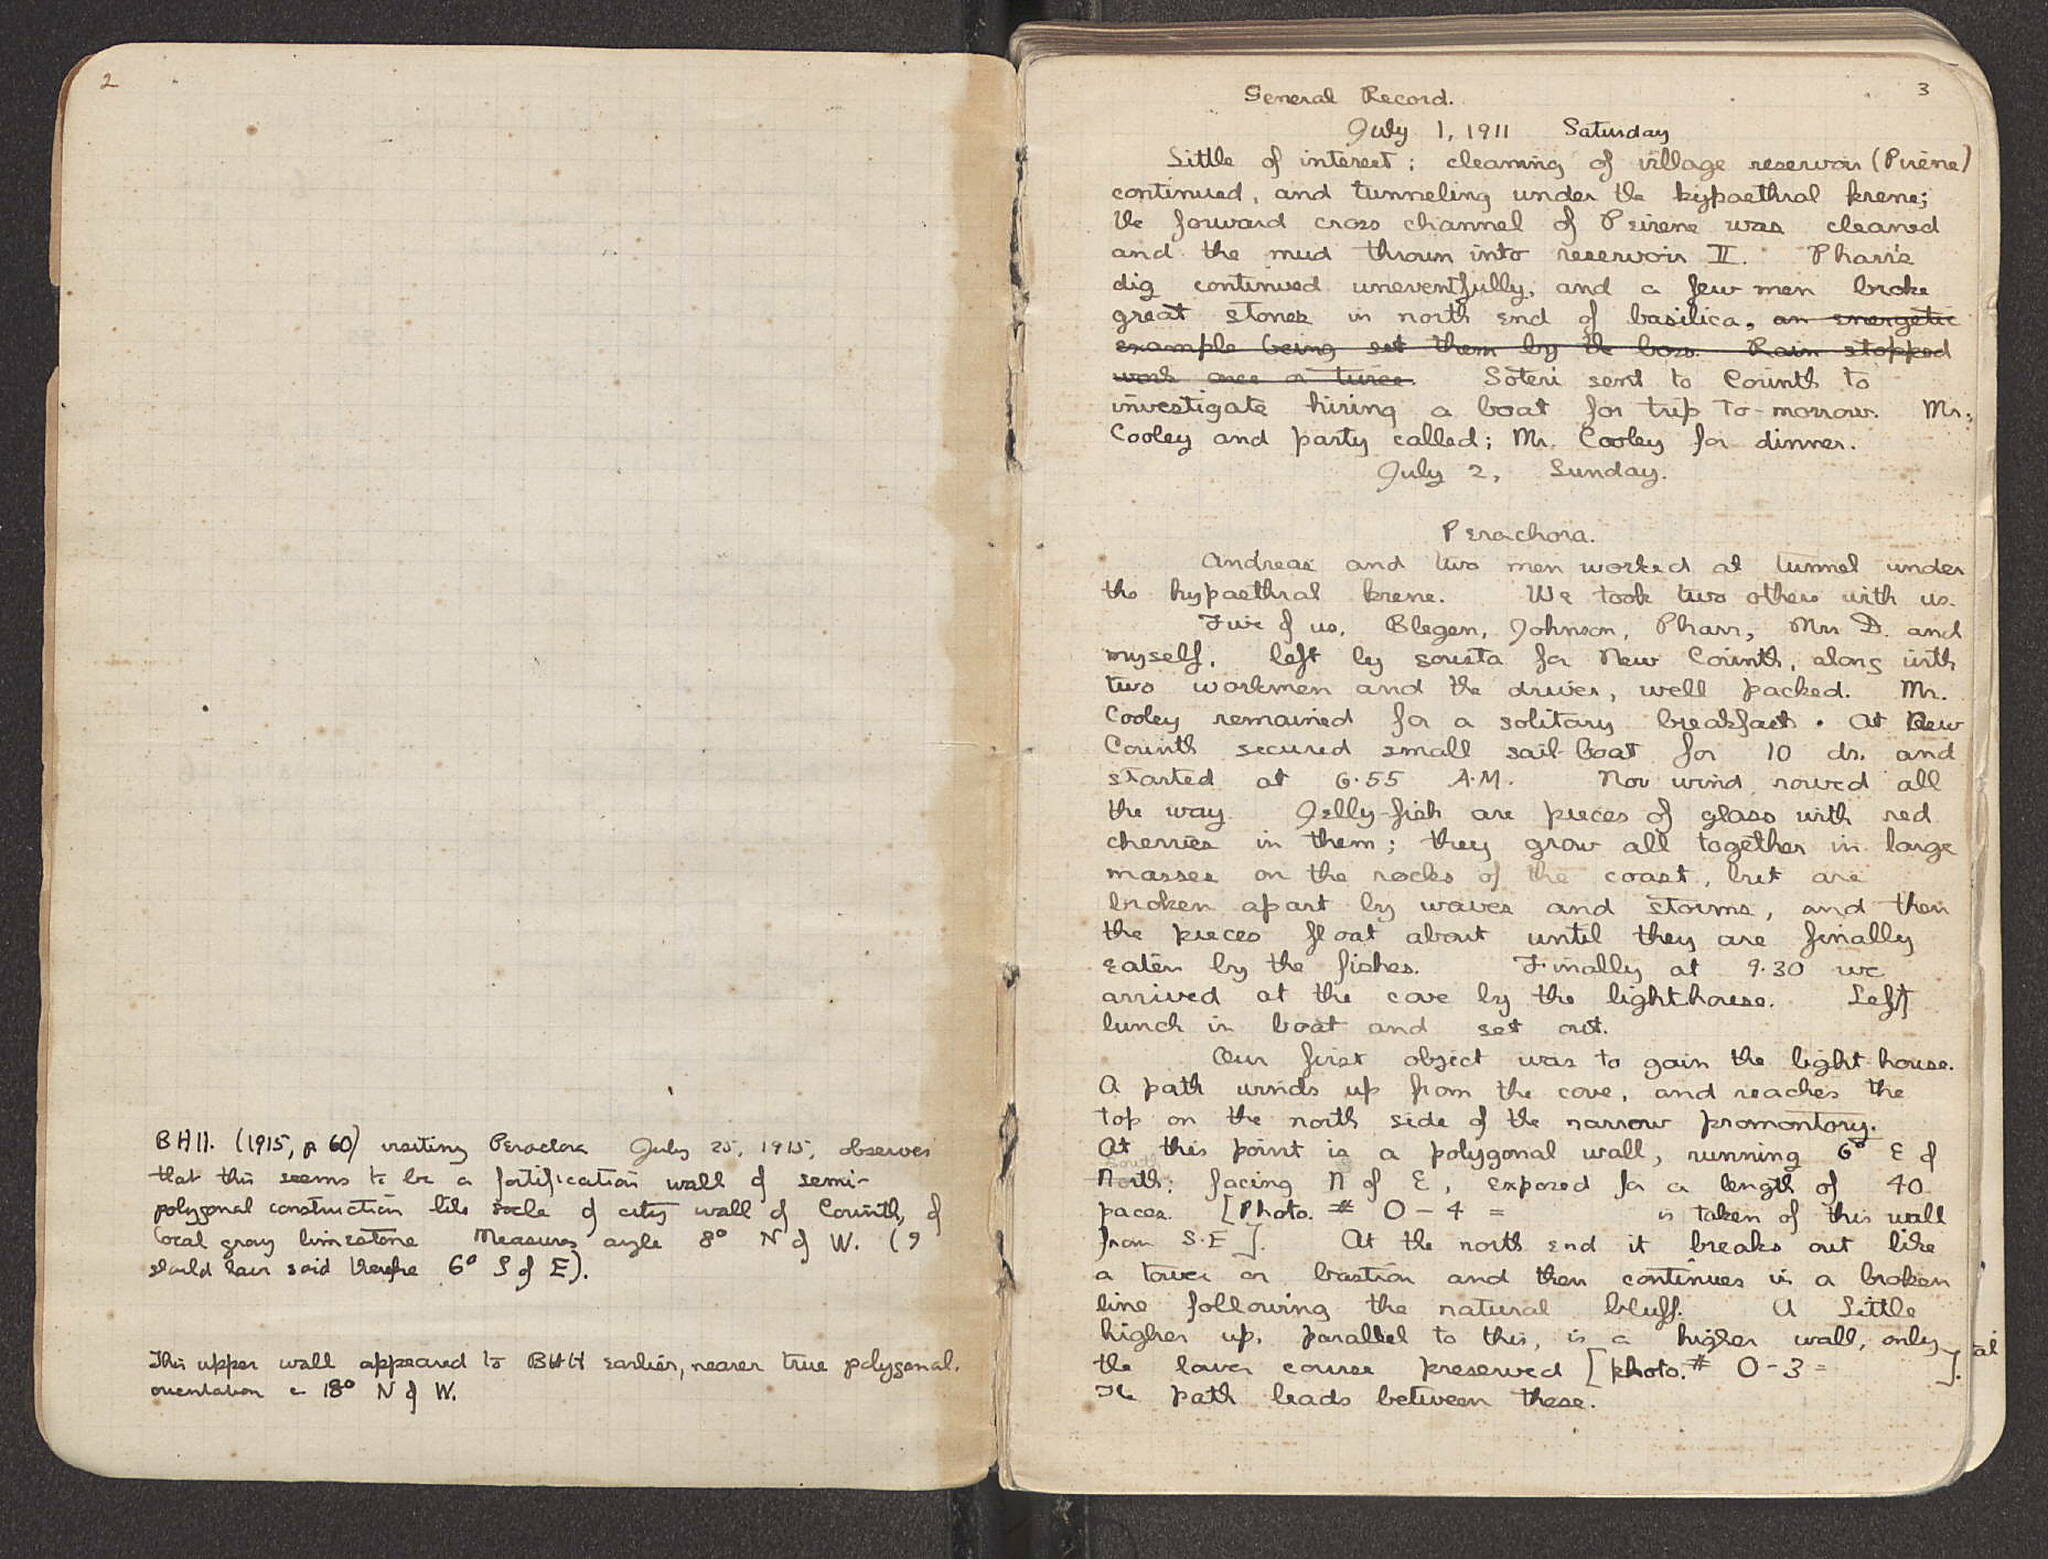 2
BHH. (1915, p 60) visiting Perachora July 25, 1915, observes
that this seems to be a fortification wall of semi-
polygonal construction like socle of city wall of Corinth, of
local gray limestone Measures angle 8° N of W. (I
should have said therefore 6° S of E).
This upper wall appeared to BHH earlier, nearer true polygonal.
orientation c. 18° N of W.
3
General Record.
July 1, 1911 Saturday
Little of interest; cleaning of village reservoir (Pirene)
continued, and tunneling under the hypaethral krene;
the forward cross channel of Peirene was cleaned
and the mud thrown into reservoir II. Pharr's
dig continued uneventfully, and a few men broke
great stones in north end of basilica. an energetic
example being set them by the boss. Rain stopped
work once or twice. Soteri sent to Corinth to
investigate hiring a boat for trip to-morrow. Mr.
Cooley and party called; Mr. Cooley for dinner.
July 2, Sunday.
Perachora.
Andreas and two men worked at tunnel under
the hypaethral krene. We took two others with us.
Five of us, Blegen, Johnson, Pharr, Mrs D. and
myself, left by sousta for New Corinth, along with
two workmen and the driver, well packed. Mr.
Cooley remained for a solitary breakfast. At New
Corinth secured small sail-boat for 10 dr. and
started at 6.55 A.M. Nor wind, rowed all
the way. Jelly-fish are pieces of glass with red
cherries in them; they grow all together in large
masses on the rocks of the coast, but are
broken apart by waves and storms, and then
the pieces float about until they are finally
eaten by the fishes. Finally at 9.30 we
arrived at the cove by the lighthouse. Left
lunch in boat and set out.
Our first object was to gain the light house.
A path winds up from the cove, and reaches the
top on the north side of the narrow promontory.
At this point is a polygonal wall, running 6° E of
South
North; facing N of E, exposed for a length of 40
paces. [Photo. # 0-4 = is taken of this wall
from S.E]. At the north end it breaks out like
a tower or bastion and then continues in a broken
line following the natural bluff. A little
higher up, parallel to this, is a higher wall, only
the lower course preserved [photo. # 0-3 = ].
The path leads between these.